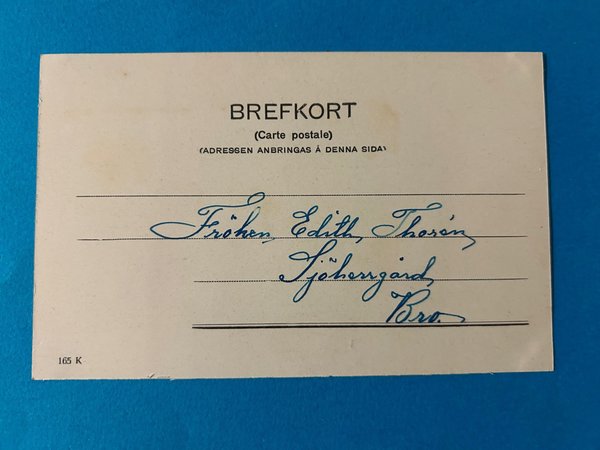 BREFKORT
(Carte postale)
(ADRESSEN ANBRINGAS Å DENNA SIDA)
Fröken Edith Thorén,
Sjöherrgård,
Bro.
165 K